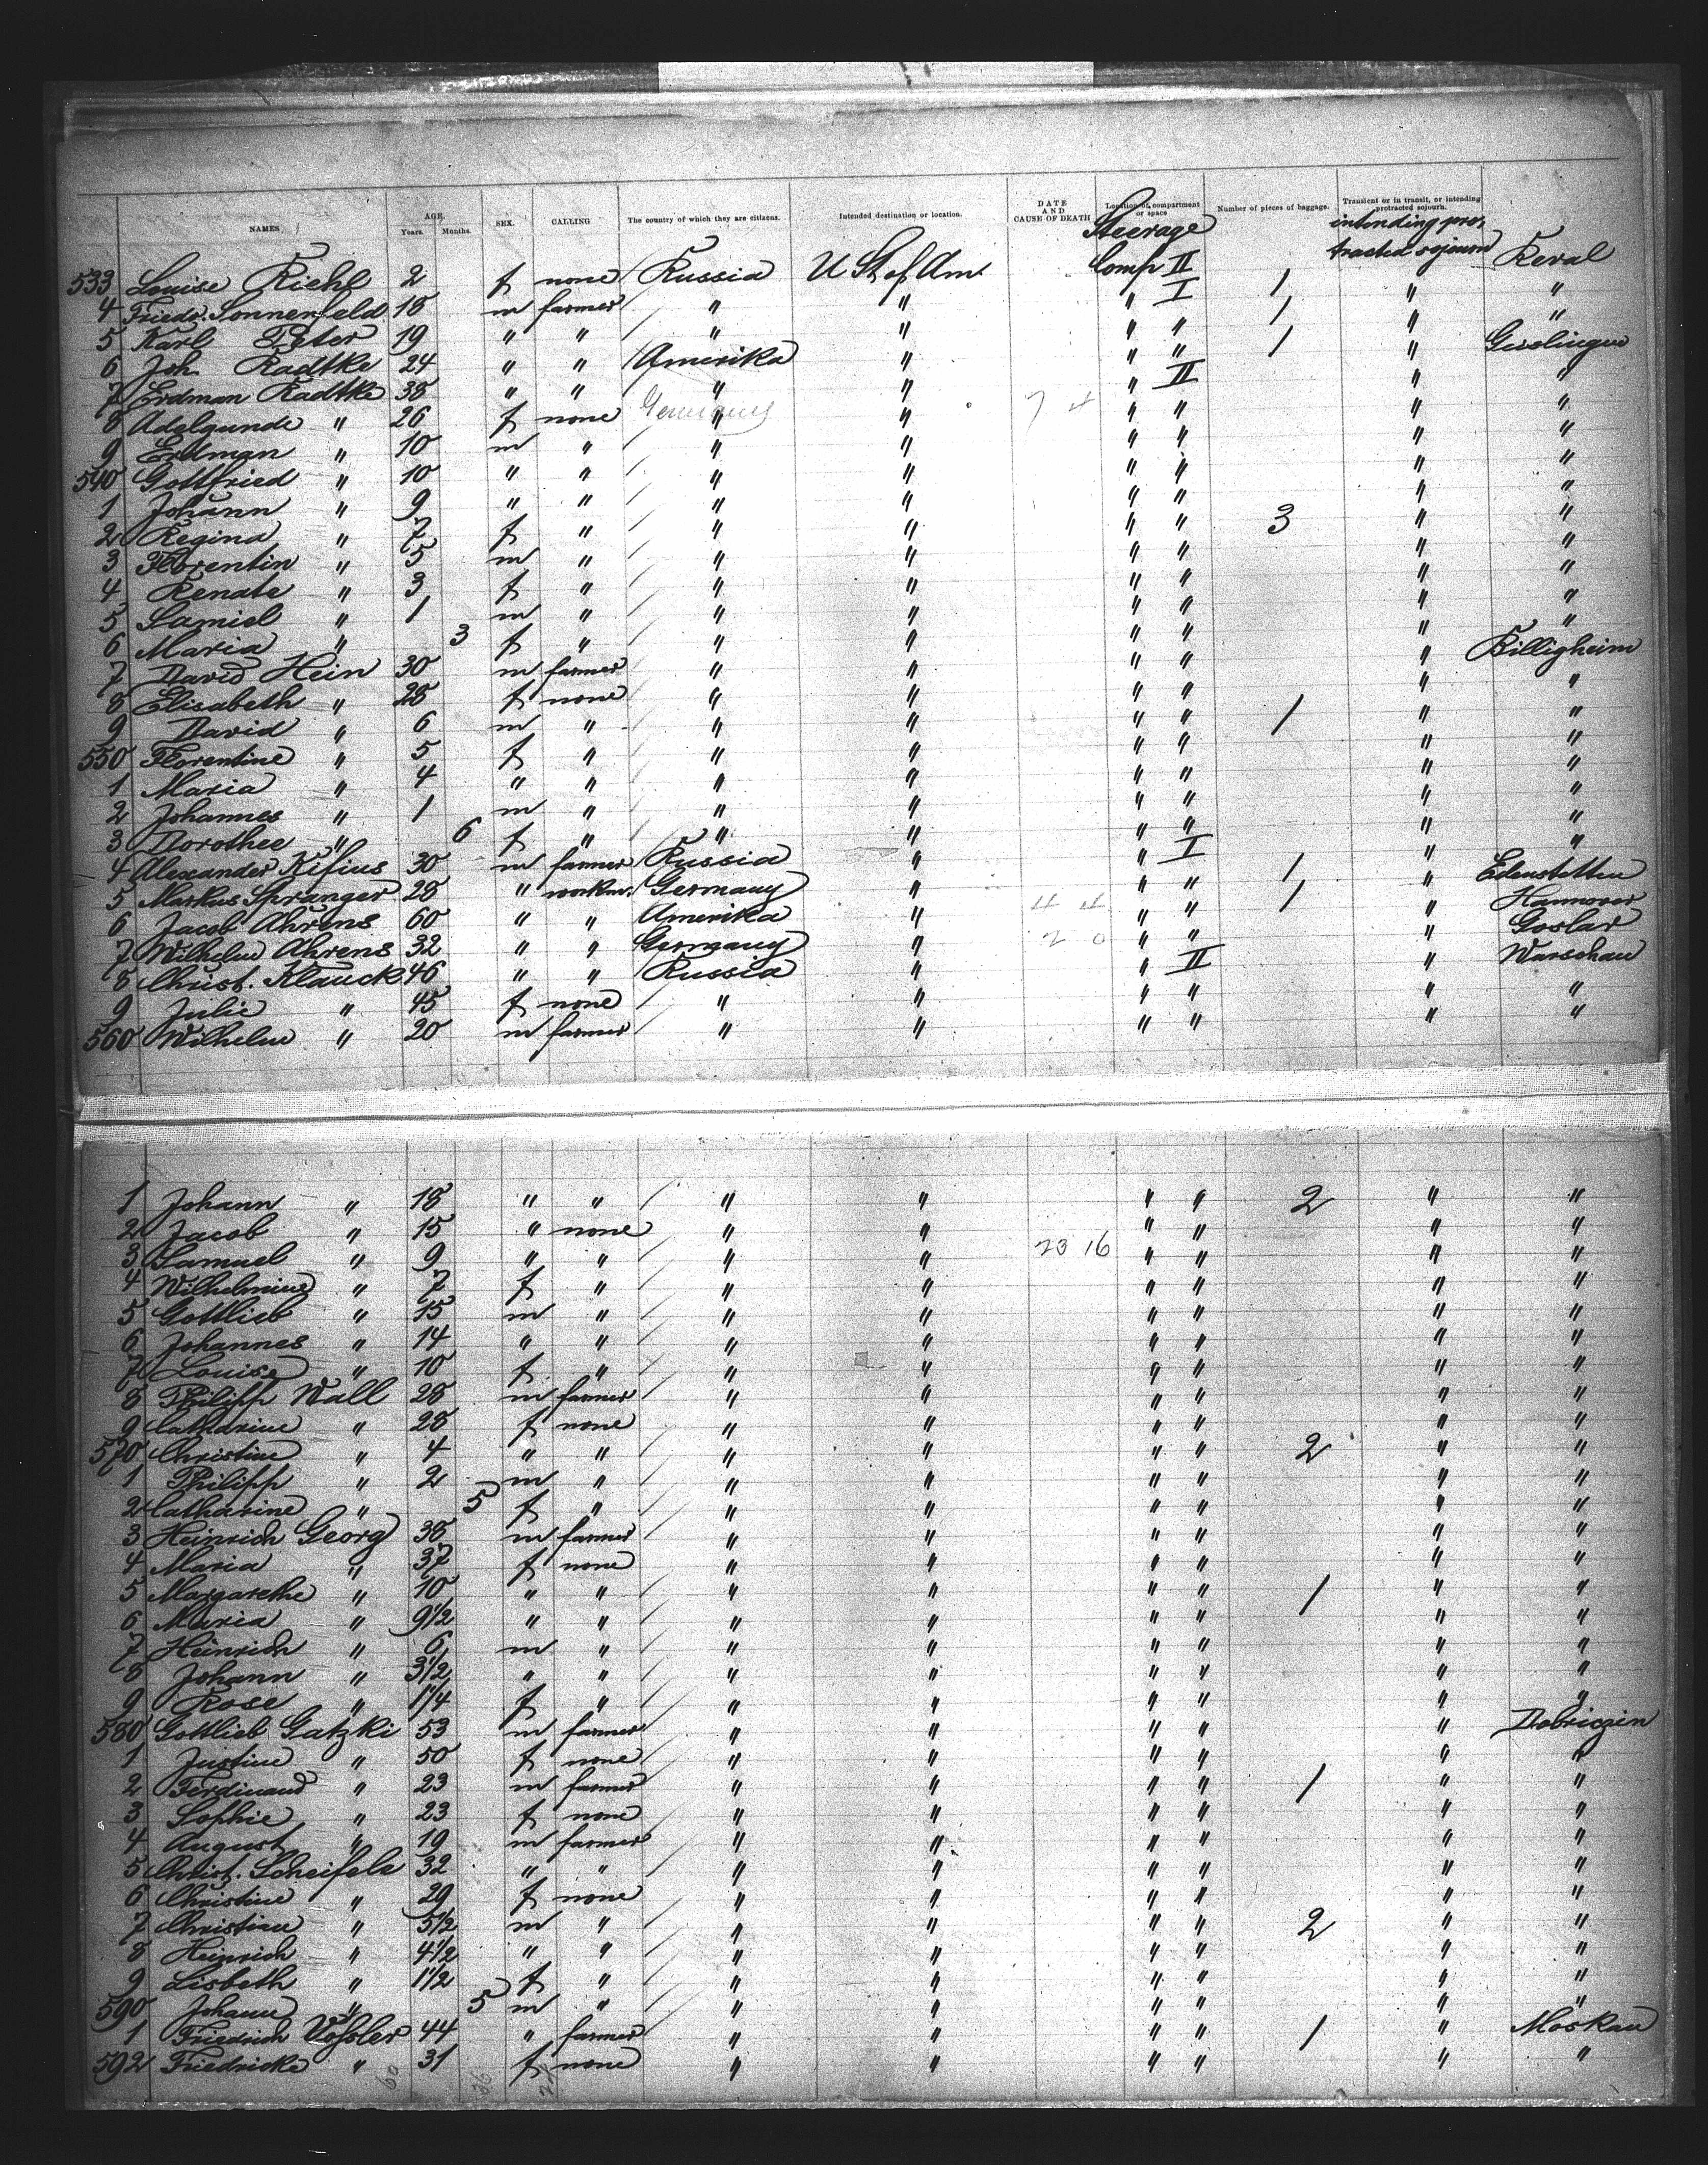 NAMES AGE. Years. Months. SEX. CALLING The country of which they are citizens. Intended destination or location. DATE AND CAUSE OF DEATH Location of compartment or space Number of pieces of baggage. Transient or in transit, or intending protracted sojourn.
Steerage intending pro-
tracted sojourn
533 Louise Riehl 2 f none Russia U St of Am. Comp II Reval
4 Friedr. Sonnenfeld 18 m farmer " " " I 1 " "
5 Karl Peter 19 " " " " " " 1 " "
6 Joh. Radtke 24 " " Amerika " " " 1 " Geislingen
7 Erdman Radtke 38 " " " " " II " "
8 Adelgunde " 26 f none Germany " " 7 4 " " " "
9 Erdman " 10 m " " " " " " "
540 Gottfried " 10 " " " " " " " "
1 Johann " 9 " " " " " " " "
2 Regina " 7 f " " " " " 3 " "
3 Florentin " 5 m " " " " " " "
4 Renate " 3 f " " " " " " "
5 Samiel " 1 m " " " " " " "
6 Maria " 3 f " " " " " " "
7 David Hein 30 m farmer " " " " " Billigheim
8 Elisabeth " 28 f none " " " " " "
9 David " 6 m " " " " " 1 " "
550 Florentine " 5 f " " " " " " "
1 Maria " 4 " " " " " " " "
2 Johannes " 1 m " " " " " " "
3 Dorothee " 6 f " " " " " " "
4 Alexander Kifius 30 m farmer Russia " " I 1 " "
5 Markus Spranger 28 " workm. Germany " " " 1 " Edenstetten
6 Jacob Ahrens 60 " " Amerika " 4 4 " " " Hannover
7 Wilhelm Ahrens 32 " " Germany " 2 0 " " " Goslar
8 Christ. Klauck 46 " " Russia " " II " Warschau
9 Julie " 45 f none " " " " " "
560 Wilhelm " 20 m farmer " " " " " "
1 Johann " 18 " " " " " " 2 " "
2 Jacob " 15 " none " " " " " "
3 Samuel " 9 " " " " 23 16 " " " "
4 Wilhelmine " 7 f " " " " " " "
5 Gottlieb " 15 m " " " " " " "
6 Johannes " 14 " " " " " " " "
7 Louise " 10 f " " " " " " "
8 Philipp Wall 28 m farmer " " " " " "
9 Catharine " 28 f none " " " " " "
570 Christine " 4 " " " " " " 2 " "
1 Philipp " 2 m " " " " " " "
2 Catharine " 5 f " " " " " " "
3 Heinrich Georg 38 m farmer " " " " " "
4 Maria " 37 f none " " " " " "
5 Margarethe " 10 " " " " " " 1 " "
6 Maria " 9 1/2 " " " " " " " "
7 Heinrich " 6 m " " " " " " "
8 Johann " 3 1/2 " " " " " " " "
9 Rose " 1 1/4 f " " " " " " "
580 Gottlieb Gatzki 53 m farmer " " " " " Dobriczin
1 Justine " 50 f none " " " " " "
2 Ferdinand " 23 m farmer " " " " 1 " "
3 Sophie " 23 f none " " " " " "
4 August " 19 m farmer " " " " " "
5 Christ. Scheifele 32 " " " " " " " "
6 Christine " 29 f none " " " " " "
7 Christian " 5 1/2 m " " " " " 2 " "
8 Heinrich " 4 1/2 " " " " " " " "
9 Lisbeth " 1 1/2 f " " " " " " "
590 Johann " 5 m " " " " " " "
1 Friedrich Vossler 44 " farmer " " " " 1 " Moskau
592 Friedricke " 31 f none " " " " " "